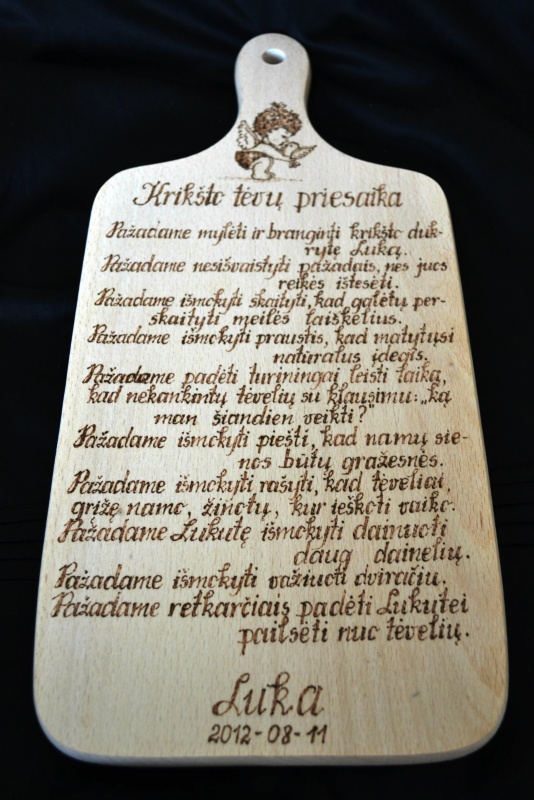 Krikšto tėvų priesaika
Pažadame mylėti ir branginti krikšto duk-
rytę Luką.
Pažadame nesišvaistyti pažadais, nes juos
reikės ištesėti.
Pažadame išmokyti skaityti, kad galėtų per-
skaityti meilės laiškelius.
Pažadame išmokyti praustis, kad matytųsi
natūralus įdegis.
Pažadame padėti turiningai leisti laiką,
kad nekankintų tėvelių su klausimu: „ką
man šiandien veikti?"
Pažadame išmokyti piešti, kad namų sie-
nos būtų gražesnės.
Pažadame išmokyti rašyti, kad tėveliai,
grįžę namo, žinotų, kur ieškoti vaiko.
Pažadame Lukutę išmokyti dainuoti
daug dainelių.
Pažadame išmokyti važiuoti dviračiu.
Pažadame retkarčiais padėti Lukutei
pailsėti nuo tėvelių.
Luka
2012-08-11